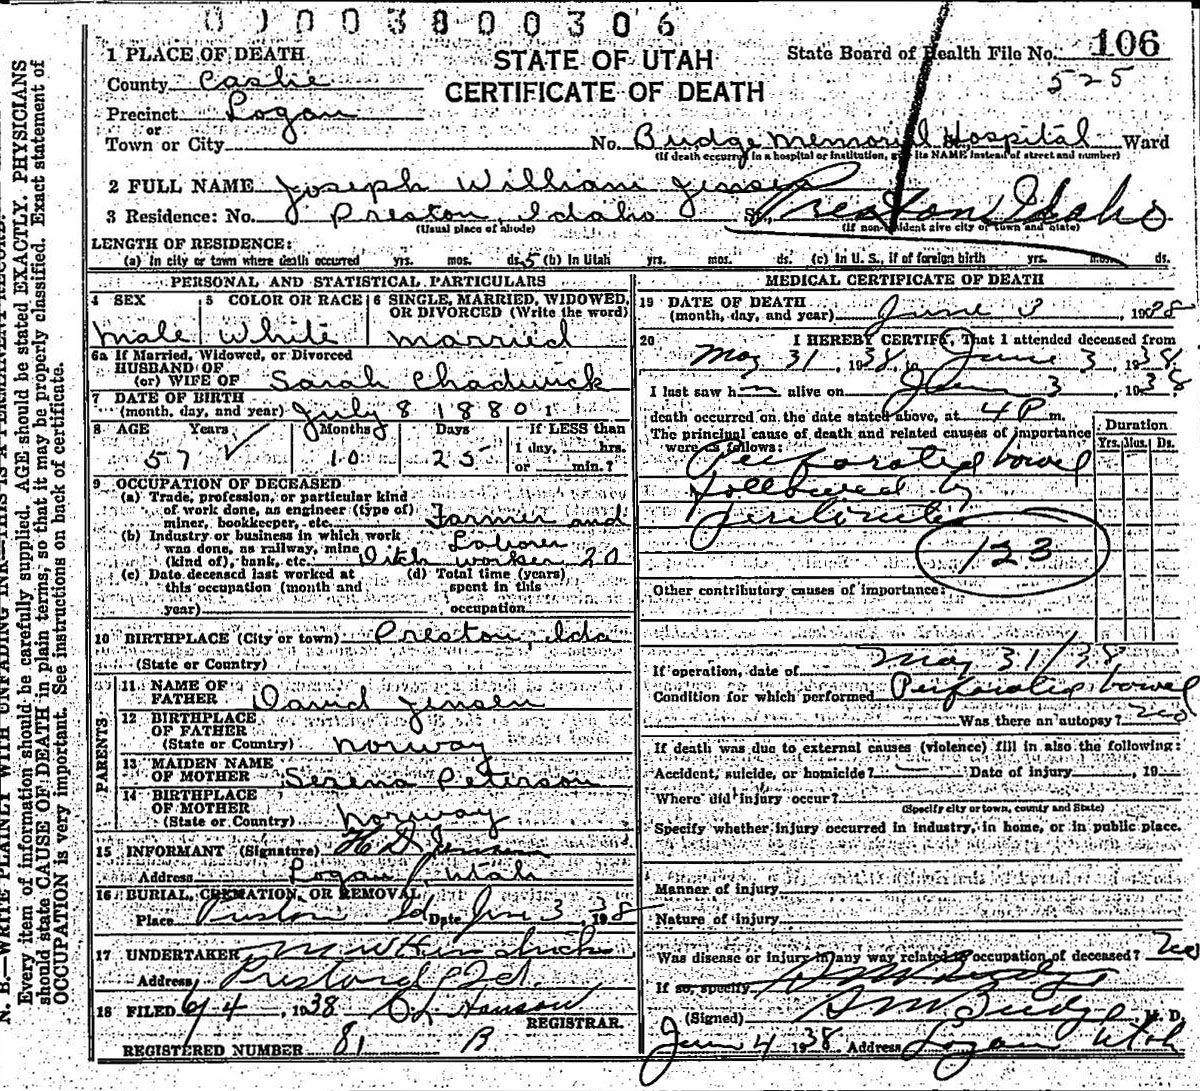 0 1 0 0 3 8 0 0 3 0 6
1 PLACE OF DEATH
STATE OF UTAH
CERTIFICATE OF DEATH
State Board of Health File No. 106
525
County Cache
Precinct Logan
or
Town or City No. Budge Memorial Hospital Ward
(If death occurred in a hospital or institution, give its NAME instead of street and number)
2 FULL NAME Joseph William Jensen
3 Residence: No. Preston, Idaho St. Preston, Idaho
(Usual place of abode) (If non-resident give city or town and state)
LENGTH OF RESIDENCE:
(a) In city or town where death occurred yrs. mos. ds. 5 (b) In Utah yrs. mos. ds. (c) In U. S., if of foreign birth yrs. mos. ds.
PERSONAL AND STATISTICAL PARTICULARS
4 SEX 5 COLOR OR RACE 6 SINGLE, MARRIED, WIDOWED, OR DIVORCED (Write the word)
Male White Married
6a If Married, Widowed, or Divorced
HUSBAND OF
(or) WIFE OF Sarah Chadwick
7 DATE OF BIRTH
(month, day, and year) July 8 1880
8 AGE Years Months Days If LESS than
57 10 25 1 day, hrs.
or min.?
9 OCCUPATION OF DECEASED
(a) Trade, profession, or particular kind
of work done, as engineer (type of)
miner, bookkeeper, etc. Farmer and
Laborer
(b) Industry or business in which work
was done, as railway, mine
(kind of), bank, etc. Ditch worker 20
(c) Date deceased last worked at (d) Total time (years)
this occupation (month and spent in this
year) occupation
10 BIRTHPLACE (City or town) Preston, Ida
(State or Country)
PARENTS
11 NAME OF
FATHER David Jensen
12 BIRTHPLACE
OF FATHER
(State or Country) Norway
13 MAIDEN NAME
OF MOTHER Serena Peterson
14 BIRTHPLACE
OF MOTHER
(State or Country) Norway
15 INFORMANT (Signature) H D Jensen
Address Logan, Utah
16 BURIAL, CREMATION, OR REMOVAL
Place Preston Id Date June 3, 1938
17 UNDERTAKER
Address Preston Id.
18 FILED 6/4, 1938 Hanson
REGISTRAR.
REGISTERED NUMBER 81 B
MEDICAL CERTIFICATE OF DEATH
19 DATE OF DEATH
(month, day, and year) June 3, 1938
20 I HEREBY CERTIFY, That I attended deceased from
May 31, 1938, June 3, 1938
I last saw h alive on June 3, 1938
death occurred on the date stated above, at 4 P m.
The principal cause of death and related causes of importance
were as follows:
Duration
Yrs. Mos. Ds.
Perforated bowel
followed by
123
Other contributory causes of importance:
If operation, date of May 31/38
Condition for which performed Perforated bowel
Was there an autopsy?
If death was due to external causes (violence) fill in also the following:
Accident, suicide, or homicide? Date of injury , 19
Where did injury occur?
(Specify city or town, county and State)
Specify whether injury occurred in industry, in home, or in public place.
Manner of injury
Nature of injury
Was disease or injury in any way related to occupation of deceased?
If so, specify
(Signed) Budge M. D.
June 4 1938 Address Logan Utah
N. B.—WRITE PLAINLY WITH UNFADING INK—THIS IS A PERMANENT RECORD.
Every item of information should be carefully supplied. AGE should be stated EXACTLY. PHYSICIANS
should state CAUSE OF DEATH in plain terms, so that it may be properly classified. Exact statement of
OCCUPATION is very important. See instructions on back of certificate.